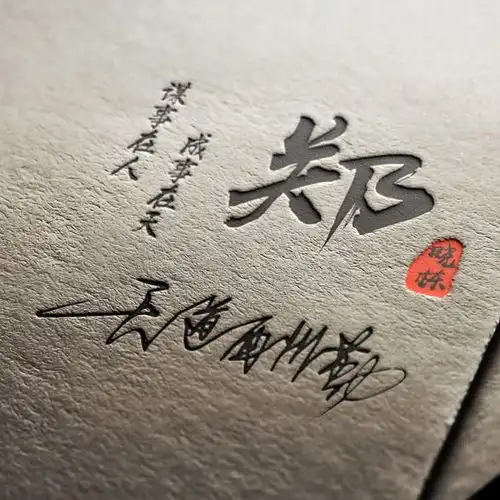 谋事在人
成事在天
郑
晓
天道酬勤